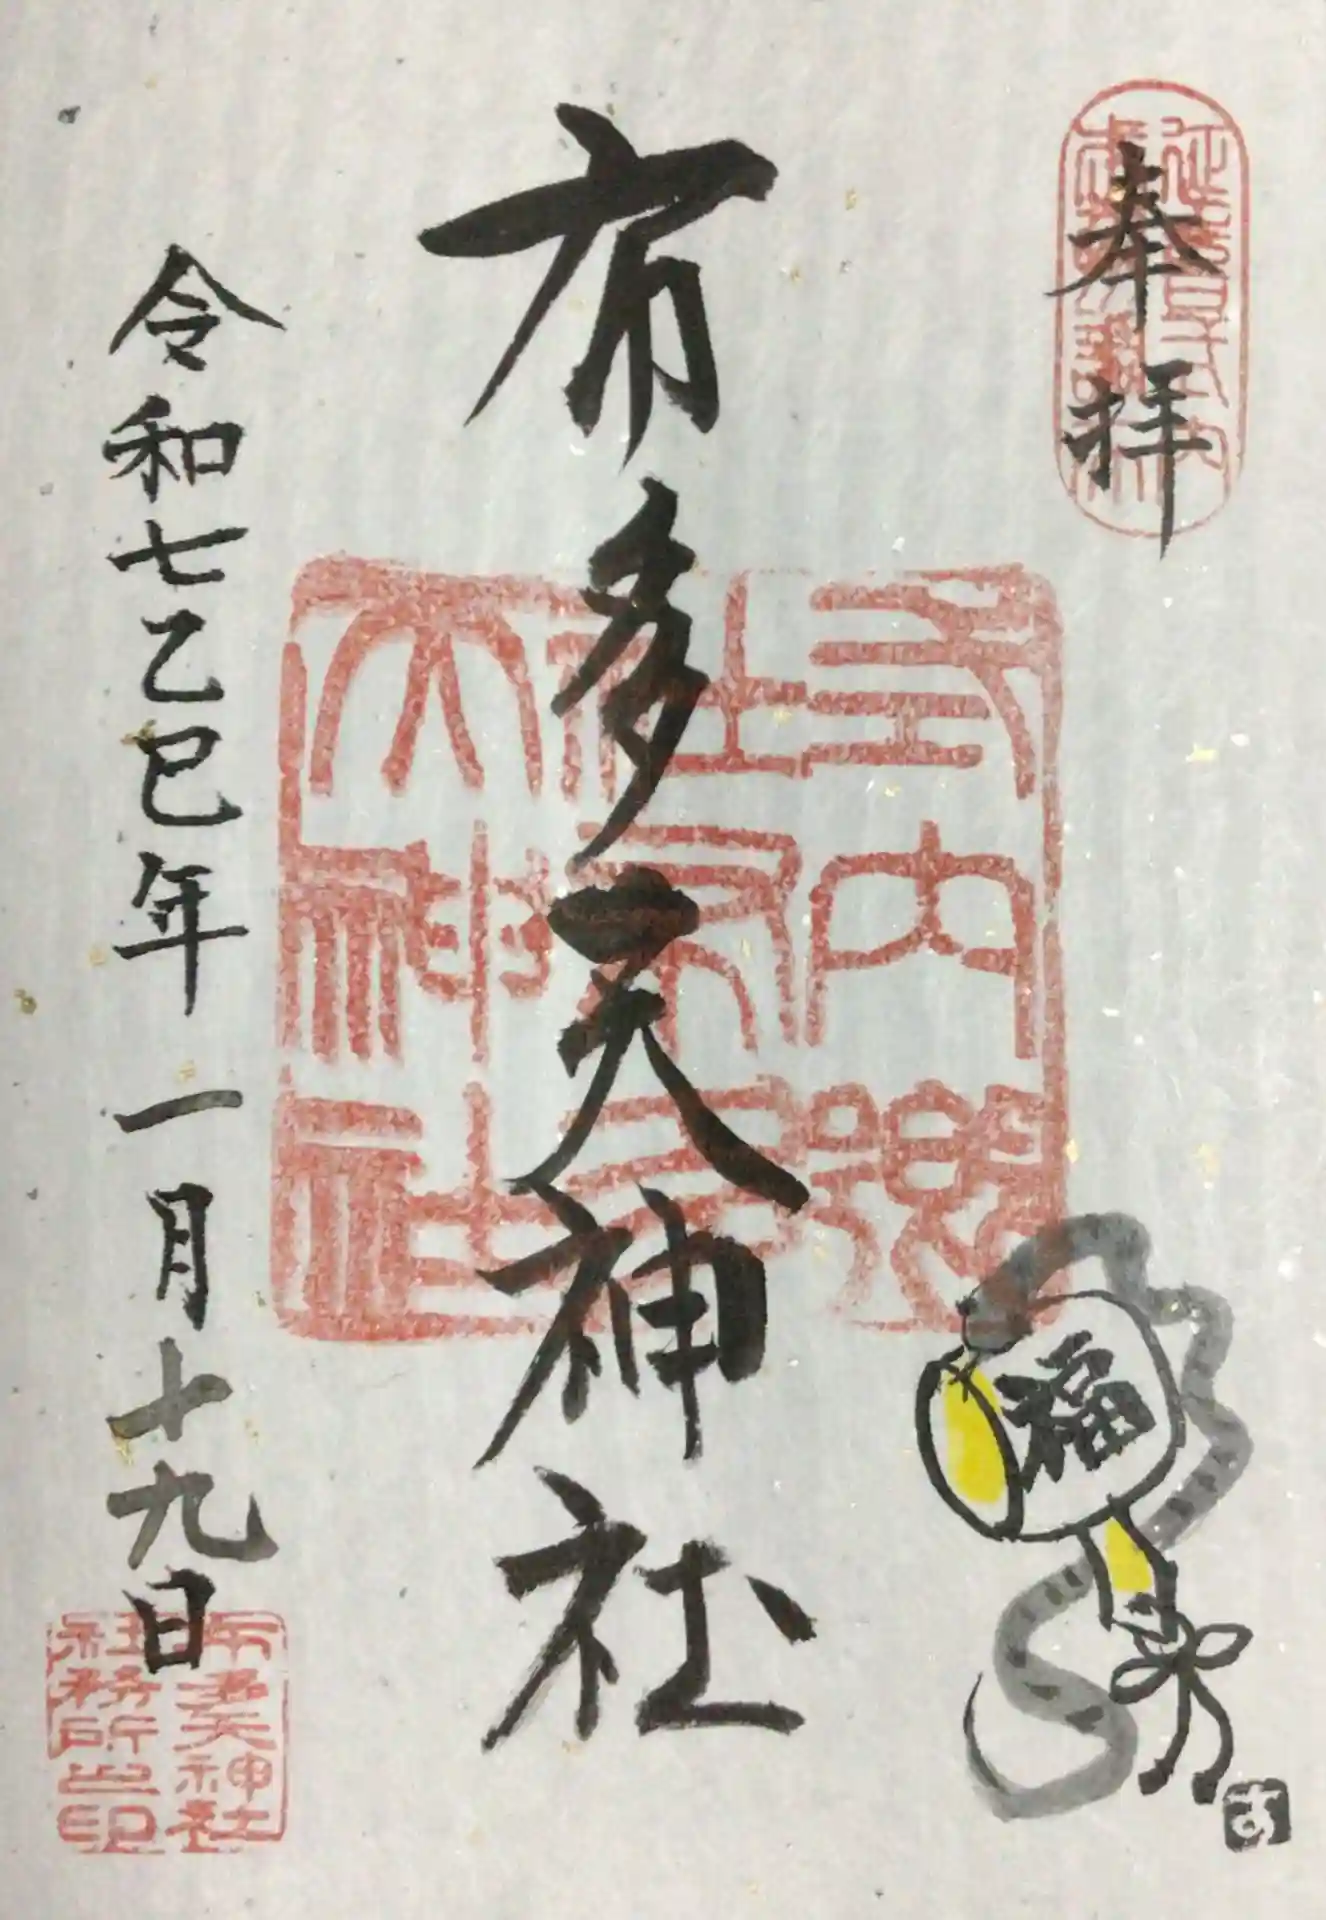 奉拝
布多天神社
式内郷
社布多
天神社
令和七乙巳年一月十九日
布多天神社
社務所之印
福
あ